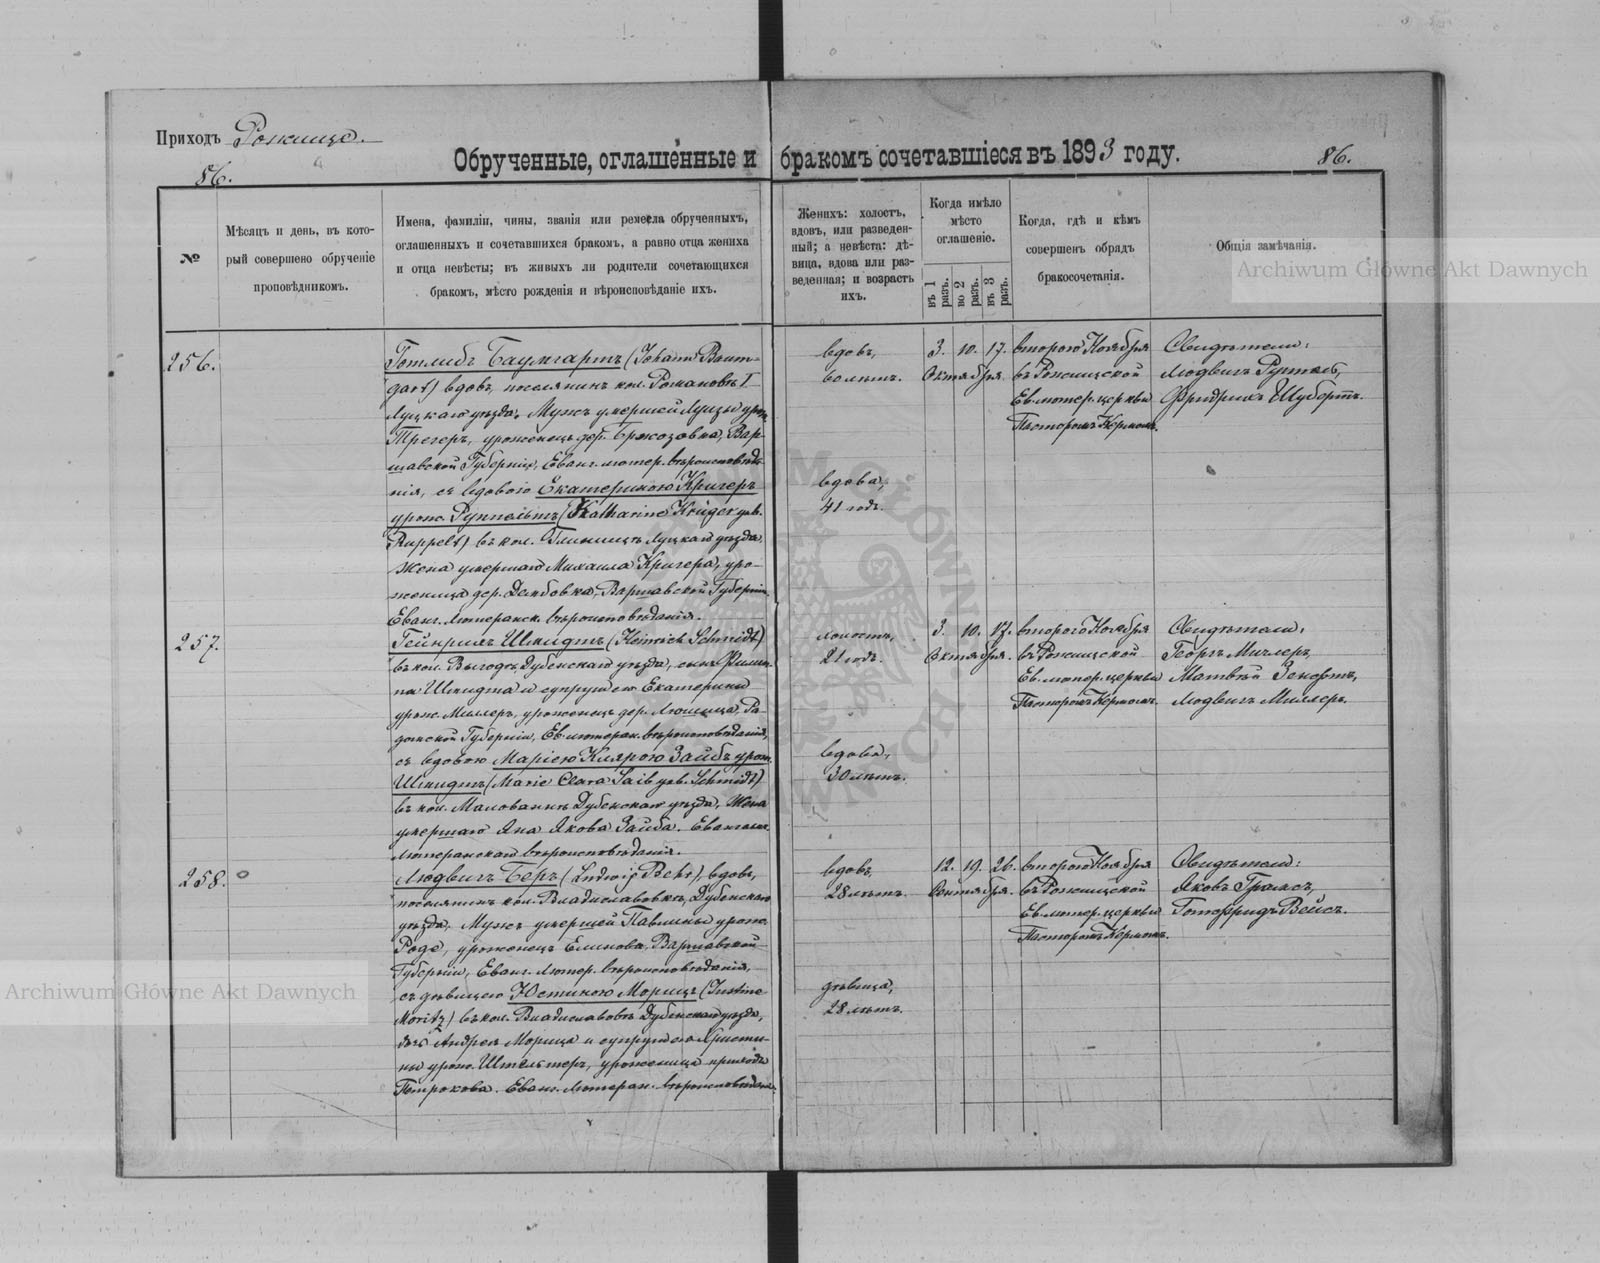 Приходъ Рожище.
86.
Обрученные, оглашенные и бракомъ сочетавшіеся въ 1893 году.
86.
№
Мѣсяцъ и день, въ кото-
рый совершено обрученіе
проповѣдникомъ.
Имена, фамиліи, чины, званія или ремесла обрученныхъ,
оглашенныхъ и сочетавшихся бракомъ, а равно отца жениха
и отца невѣсты; въ живыхъ ли родители сочетающихся
бракомъ, мѣсто рожденія и вѣроисповѣданіе ихъ.
Женихъ: холостъ,
вдовъ, или разведен-
ный; а невѣста: дѣ-
вица, вдова или раз-
веденная; и возрастъ
ихъ.
Когда имѣло
мѣсто
оглашеніе.
въ 1 разъ.
во 2 разъ.
въ 3 разъ.
Когда, гдѣ и кѣмъ
совершенъ обрядъ
бракосочетанія.
Общія замѣчанія.
Archiwum Główne Akt Dawnych
256.
Готлибъ Баумгартъ (Johann Baum-
gart) вдовъ, поселянинъ кол. Романовъ I
Луцкаго уѣзда, Мужъ умершей Луизы урож.
Трегеръ, уроженецъ дер. Бржозовка, Вар-
шавской Губерніи, Еванг. лютер. вѣроисповѣда-
нія, съ вдовою Екатериною Кригеръ
урож. Руппельтъ (Katharine Krüger geb.
Ruppelt) въ кол. Глинищѣ Луцкаго уѣзда.
Жена умершаго Михаила Кригера, уро-
женица дер. Дембовка, Варшавской Губерніи.
Еванг. Лютеранск. вѣроисповѣданія.
вдовъ,
лѣтъ.
вдова,
41 годъ.
3. 10. 17.
Октября.
второго Ноября
въ Рожищской
Ев. лютер. церкви
Пасторомъ Кермомъ.
Свидѣтели:
Людвигъ
Фридрихъ Шубертъ.
257.
Гейнрихъ Шмидтъ (Heinrich Schmidt)
въ кол. Выгодѣ Дубенскаго уѣзда, сынъ Филип-
па Шмидта и супруги его Екатерины
урож. Миллеръ, уроженецъ дер. Ра-
домской Губерніи, Ев. лютеран. вѣроисповѣданія,
съ вдовою Маріею Кларою Зайбъ урож.
Шмидтъ (Marie Clara Saib geb. Schmidt)
въ кол. Малованкѣ Дубенскаго уѣзда, Жена
умершаго Яна Якова Зайба. Евангел.
Лютеранскаго вѣроисповѣданія.
холостъ,
21 годъ.
вдова,
30 лѣтъ.
3. 10. 17.
Октября.
второго Ноября
въ Рожищской
Ев. лютер. церкви
Пасторомъ Кермомъ.
Свидѣтели:
Георгъ
Матвѣй
Людвигъ Миллеръ.
258.
Людвигъ Беръ (Ludwig Behr), вдовъ,
поселянинъ кол. Владиславовкѣ, Дубенскаго
уѣзда, Мужъ умершей Павлины урож.
Роде, уроженецъ Варшавской
Губерніи, Еванг. Лютер. вѣроисповѣданія,
съ дѣвицею Юстиною Морицъ (Justine
Moritz) въ кол. Владиславовкѣ Дубенскаго уѣзда,
дочь Андрея Морица и супруги его Христи-
ны урож. Штельтеръ, уроженица прихода
Петрокова. Еванг. Лютеран. вѣроисповѣданія.
вдовъ,
28 лѣтъ.
дѣвица,
28 лѣтъ.
12. 19. 26.
Сентября.
второго Ноября
въ Рожищской
Ев. лютер. церкви
Пасторомъ Кермомъ.
Свидѣтели:
Яковъ
Готфридъ Вейсъ.
Archiwum Główne Akt Dawnych